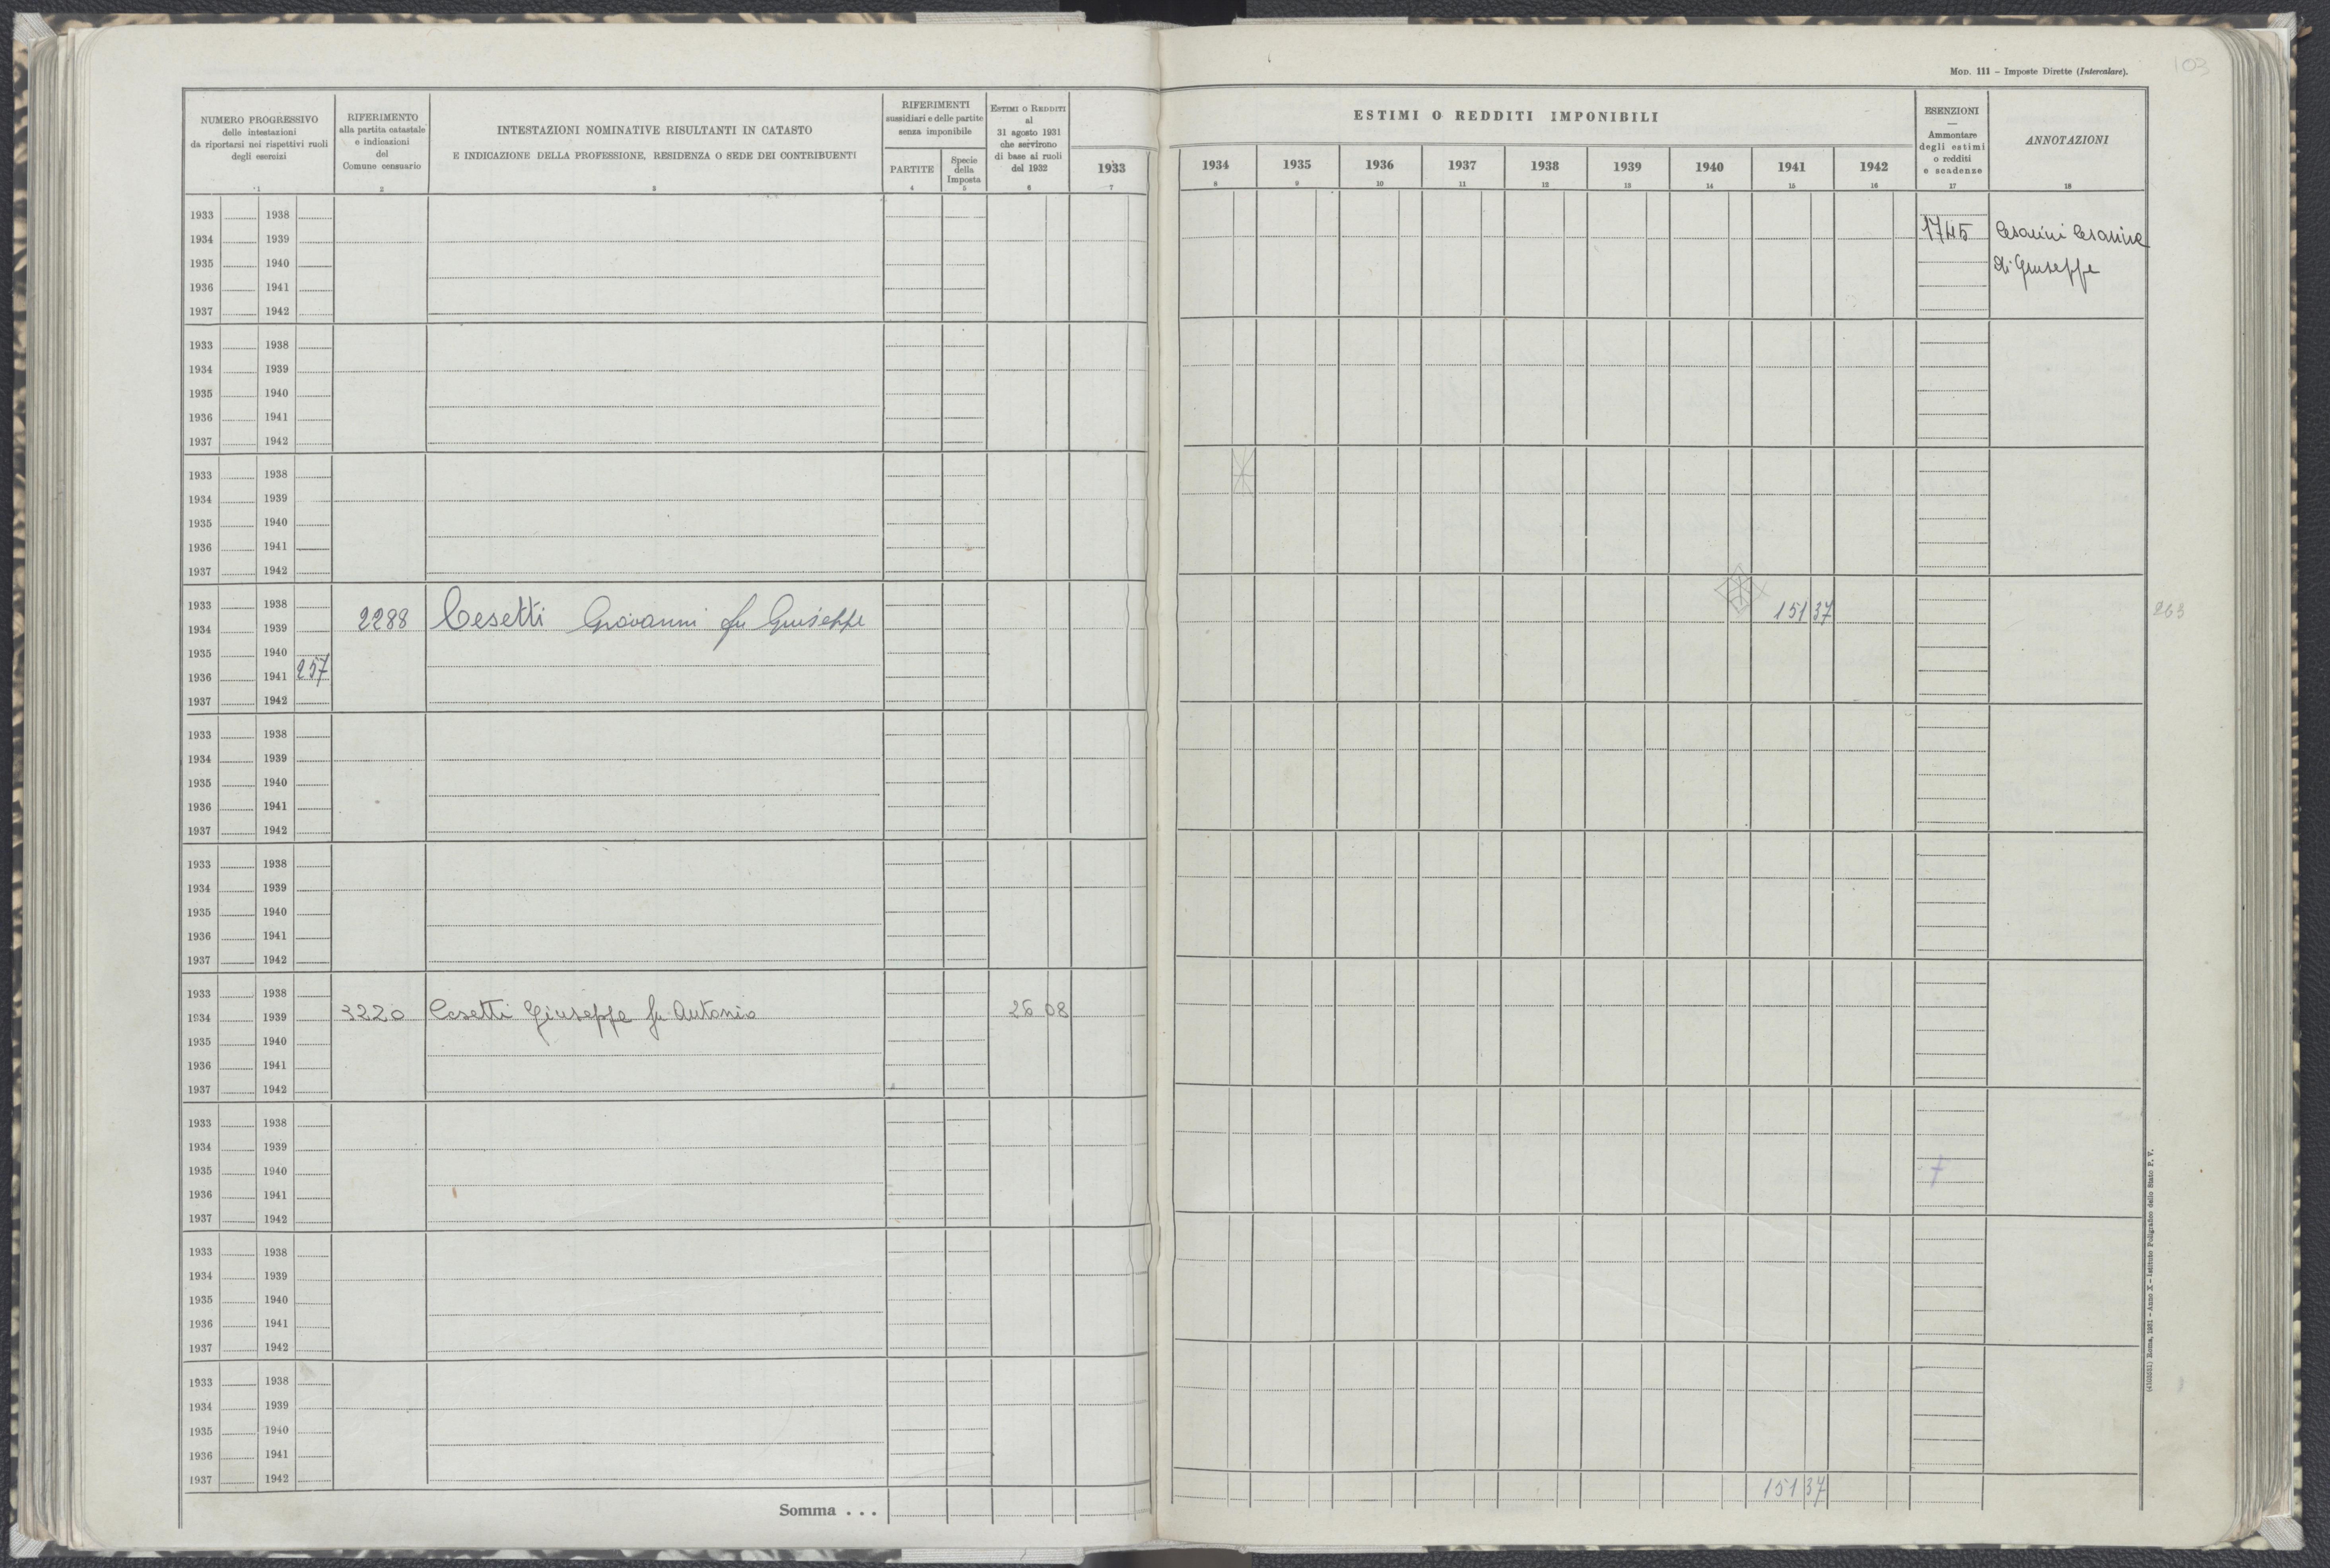 103
MOD. 111 – Imposte Dirette (Intercalare).
NUMERO PROGRESSIVO
delle intestazioni
da riportarsi nei rispettivi ruoli
degli esercizi
1
RIFERIMENTO
alla partita catastale
e indicazioni
del
Comune censuario
2
INTESTAZIONI NOMINATIVE RISULTANTI IN CATASTO
E INDICAZIONE DELLA PROFESSIONE, RESIDENZA O SEDE DEI CONTRIBUENTI
3
RIFERIMENTI
sussidiari e delle partite
senza imponibile
PARTITE
4
Specie
della
Imposta
5
ESTIMI O REDDITI
al
31 agosto 1931
che servirono
di base ai ruoli
del 1932
6
ESTIMI O REDDITI IMPONIBILI
1933
7
1934
8
1935
9
1936
10
1937
11
1938
12
1939
13
1940
14
1941
15
1942
16
ESENZIONI
—
Ammontare
degli estimi
o redditi
e scadenze
17
ANNOTAZIONI
18
1933 1938
1934 1939 1745 Cesarini Cesarina
1935 1940 di Giuseppe
1936 1941
1937 1942
1933 1938
1934 1939
1935 1940
1936 1941
1937 1942
1933 1938
1934 1939
1935 1940
1936 1941
1937 1942
1933 1938
1934 1939 2288 Cesetti Giovanni fu Giuseppe 151 37 263
1935 1940
1936 1941 257
1937 1942
1933 1938
1934 1939
1935 1940
1936 1941
1937 1942
1933 1938
1934 1939
1935 1940
1936 1941
1937 1942
1933 1938
1934 1939 3220 Cesetti Giuseppe fu Antonio 26 08
1935 1940
1936 1941
1937 1942
1933 1938
1934 1939
1935 1940
1936 1941
1937 1942
1933 1938
1934 1939
1935 1940
1936 1941
1937 1942
1933 1938
1934 1939
1935 1940
1936 1941
1937 1942
Somma . . . 151 37
Roma, 1931 – Anno X – Istituto Poligrafico dello Stato P. V.